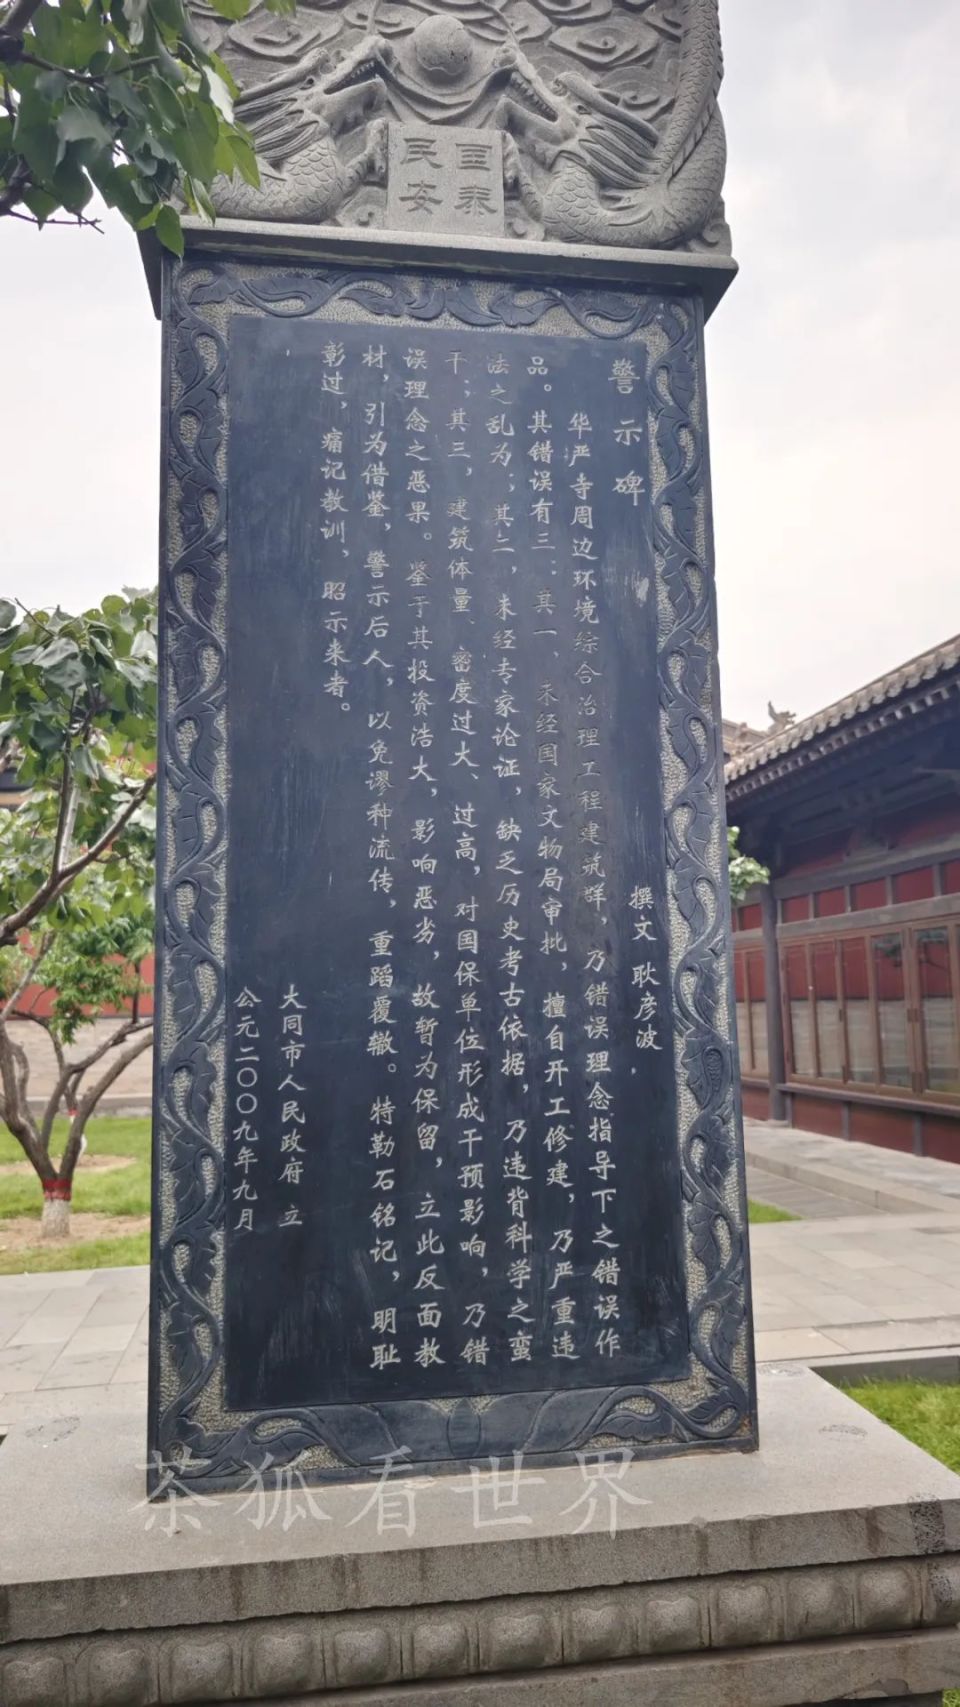 国泰
民安
警示碑
撰文 耿彦波
华严寺周边环境综合治理工程建筑群，乃错误理念指导下之错误作
品。其错误有三：其一、未经国家文物局审批，擅自开工修建，乃严重违
法之乱为；其二，未经专家论证，缺乏历史考古依据，乃违背科学之蛮
干；其三，建筑体量、密度过大、过高，对国保单位形成干预影响，乃错
误理念之恶果。鉴于其投资浩大，影响恶劣，故暂为保留，立此反面教
材，引为借鉴，警示后人，以免谬种流传，重蹈覆辙。特勒石铭记，明耻
彰过，痛记教训，昭示来者。
大同市人民政府 立
公元二〇〇九年九月
茶狐看世界